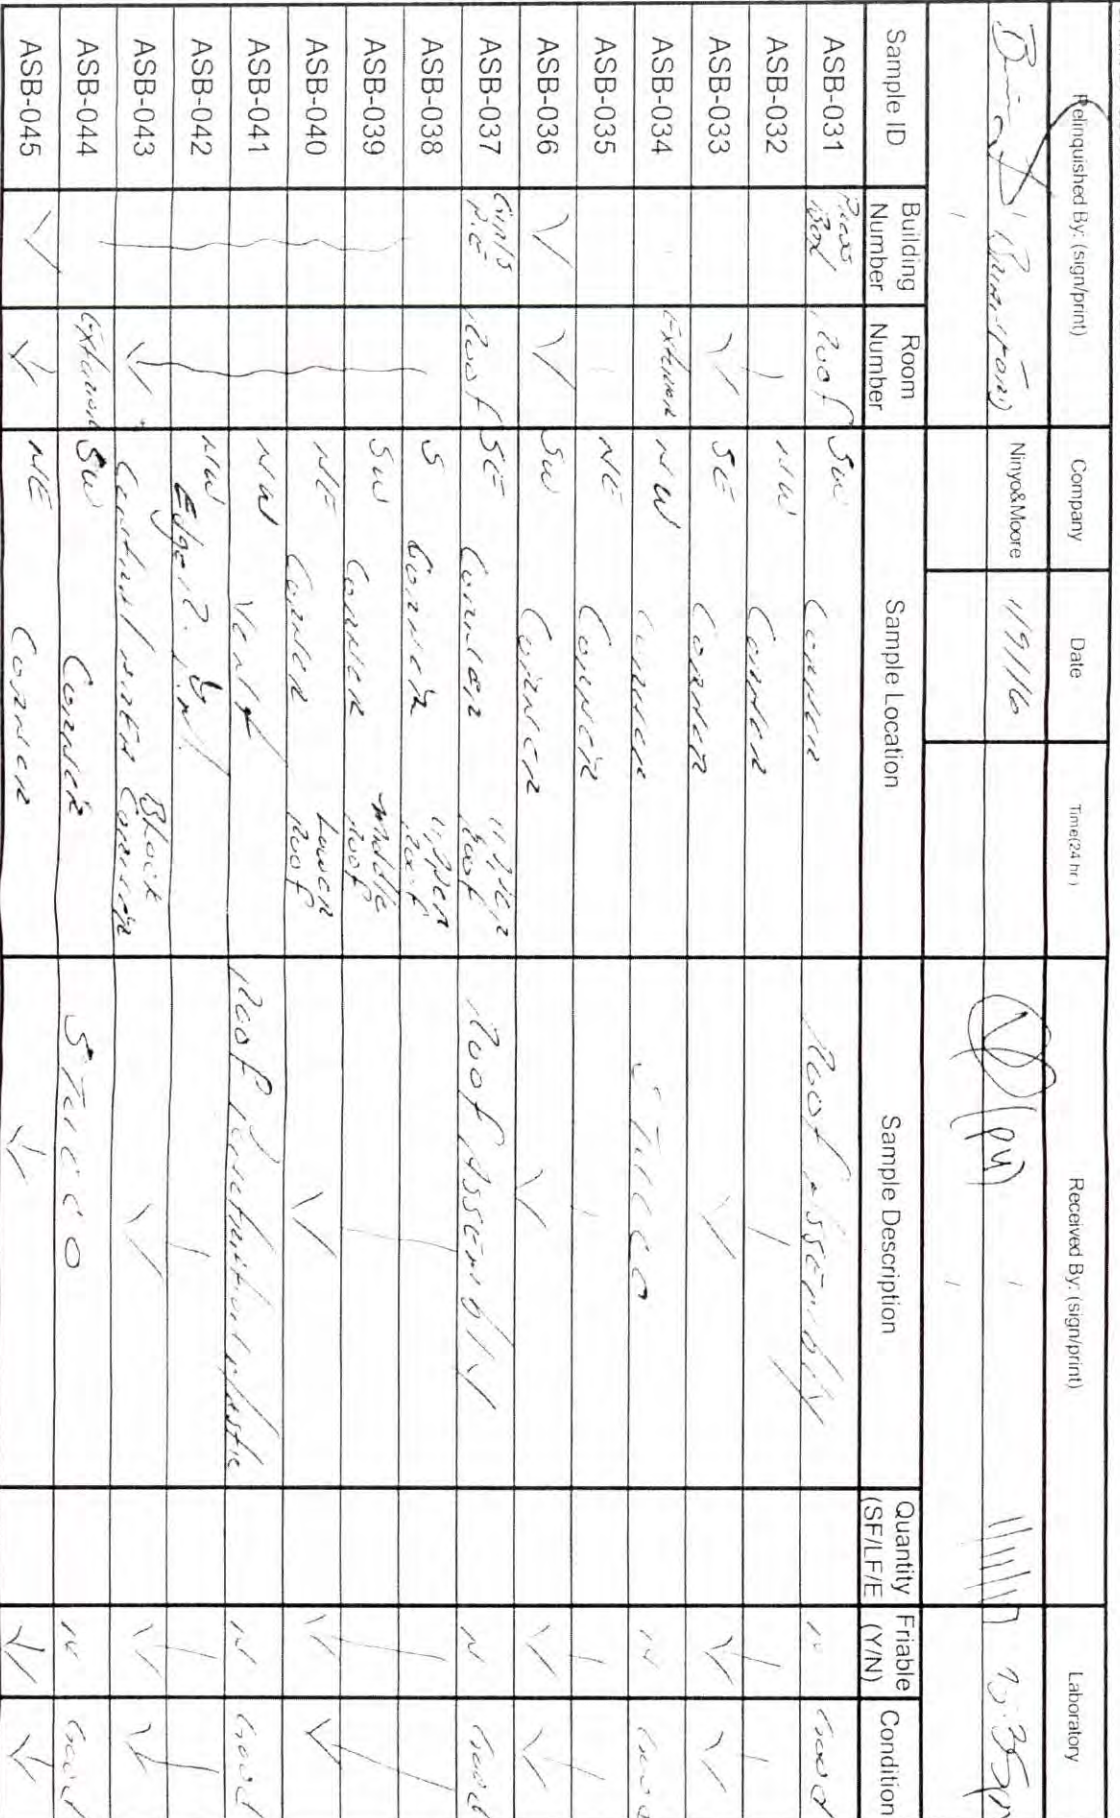 Relinquished By: (sign/print) Company Date Time(24 hr) Received By: (sign/print) Laboratory
Ninyo&Moore 1/9/16 (PM)
Sample ID Building Number Room Number Sample Location Sample Description Quantity (SF/LF/E Friable (Y/N) Condition
ASB-031 Roof SW Corner Roof Assembly N Good
ASB-032 NW Corner
ASB-033 SE Corner
ASB-034 Exterior NW Corner Stucco N Good
ASB-035 NE Corner
ASB-036 SW Corner
ASB-037 Girls P.E Roof SE Corner Upper Roof Roof Assembly N Good
ASB-038 S Corner Upper Roof
ASB-039 SW Corner Middle Roof
ASB-040 NE Corner Lower Roof
ASB-041 NW Vent Roof Penetration Mastic N Good
ASB-042 NW Edge
ASB-043 Central Block Corner
ASB-044 Exterior SW Corner Stucco N Good
ASB-045 NE Corner